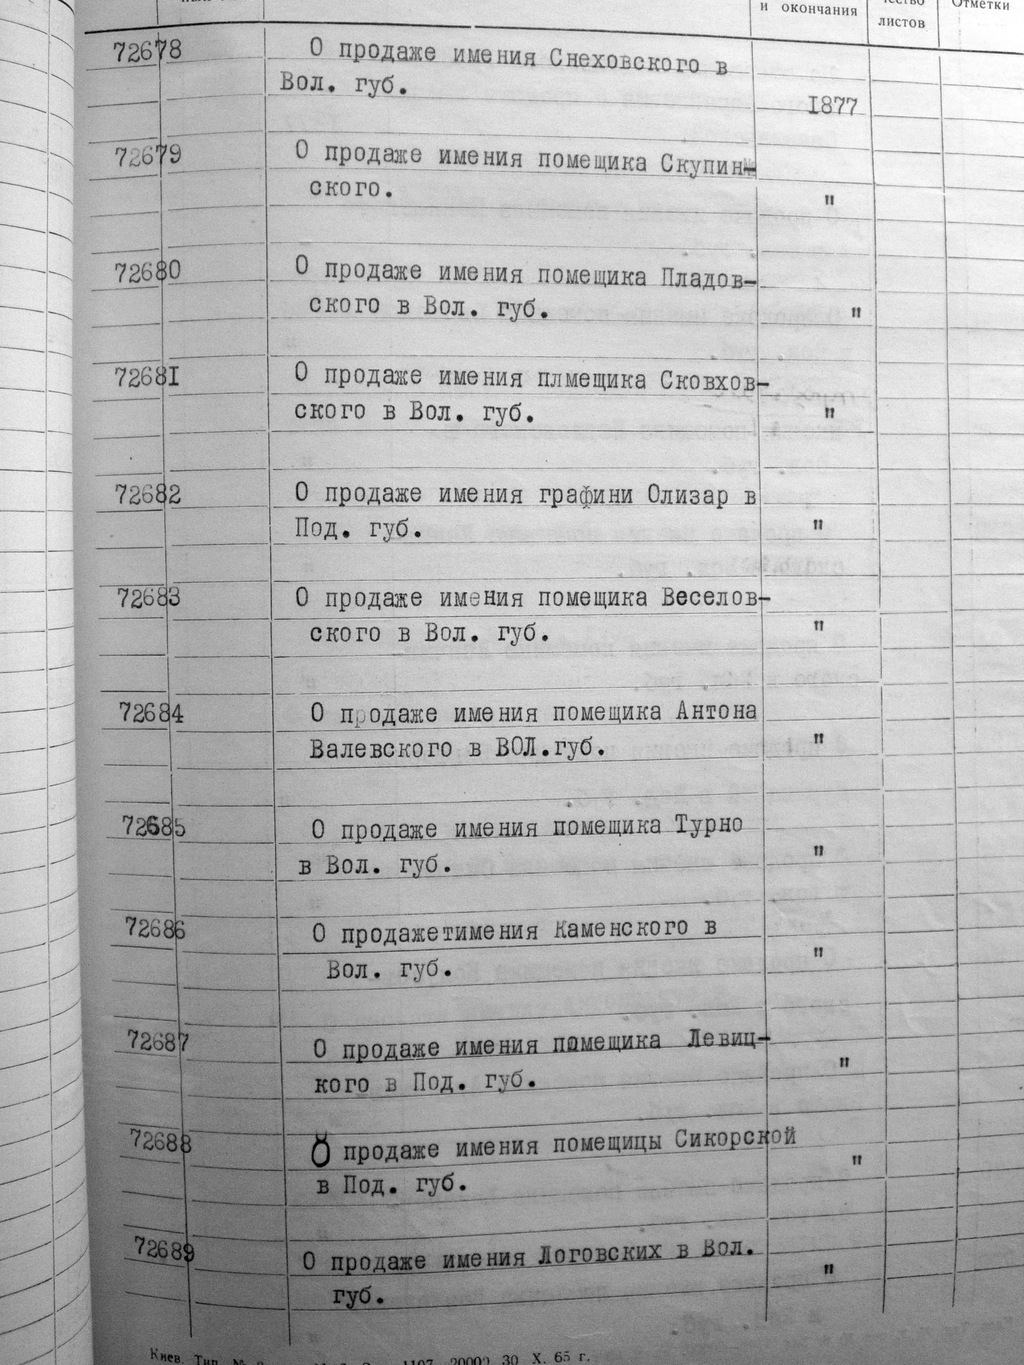 и окончания
листов
Отметки
72678 О продаже имения Снеховского в
Вол. губ. 1877
72679 О продаже имения помещика Скупин-
ского. "
72680 О продаже имения помещика Пладов-
ского в Вол. губ. "
72681 О продаже имения плмещика Сковхов-
ского в Вол. губ. "
72682 О продаже имения графини Олизар в
Под. губ. "
72683 О продаже имения помещика Веселов-
ского в Вол. губ. "
72684 О продаже имения помещика Антона
Валевского в ВОЛ.губ. "
72685 О продаже имения помещика Турно
в Вол. губ. "
72686 О продажетимения Каменского в
Вол. губ. "
72687 О продаже имения помещика Левиц-
кого в Под. губ. "
72688 О продаже имения помещицы Сикорской
в Под. губ. "
72689 О продаже имения Логовских в Вол.
губ. "
Киев. Тип. 1107 20002 30. X. 65 г.